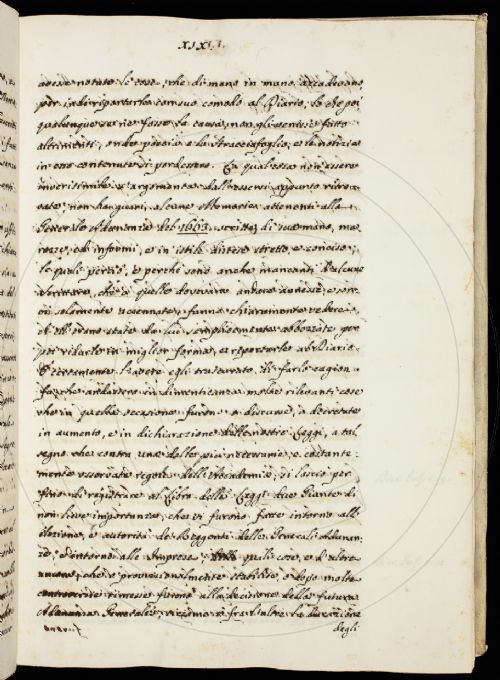 XIXI.
avesse notato le cose, che di mano in mano accadevano,
per indi riportarle con suo comodo al Diario; lo che poi
qualunque se ne fosse la causa, non gli venisse fatto
altrimenti, onde poscia e lo stracciafoglio, e le notizie
in esso contenute si perdessero. Ex qual cosa non essere
inverisimile s'argomenta dall'essersi appunto ritro-
vate, non ha guari, alcune Memorie attenenti alla
Generale Adunanza del 1663. scritte di suo mano, ma
rozze, ed informi, e in istile disteso stretto, e conciso;
le quali perciò, e perchè sono anche mancanti d'alcune
scritture, che a quelle dovevano andare annesse, e son
solamente accennate, fanno chiaramente vedere
essere state da lui semplicemente abbozzate per
poi ridurle in miglior forma, e riportarle al Diario.
E certamente l'avere egli trascurato di farlo cagion
fu che andassero in dimenticanza molte rilevanti cose
che in quelle occasione furono o discusse, o decretate
in aumento, e in dichiarazione delle nostre Leggi, a tal
segno che contra una delle più necessarie, e costante-
mente osservate regole dell'Accademia, si lasciò per-
fino di registrare al Libro delle Leggi due Giunte di
non lieve importanza, che vi furono fatte intorno all'
elezione, e autorità de' Reggenti delle Generali Adunan-
ze, ed intorno alle Imprese; quali cose, e d'altre
ancora, che provvisionalmente stabilite, e dopo molte
controversie rimesse furono alla decisione della futura
Adunanza Generale, siccome fra l'altre la
furono degli